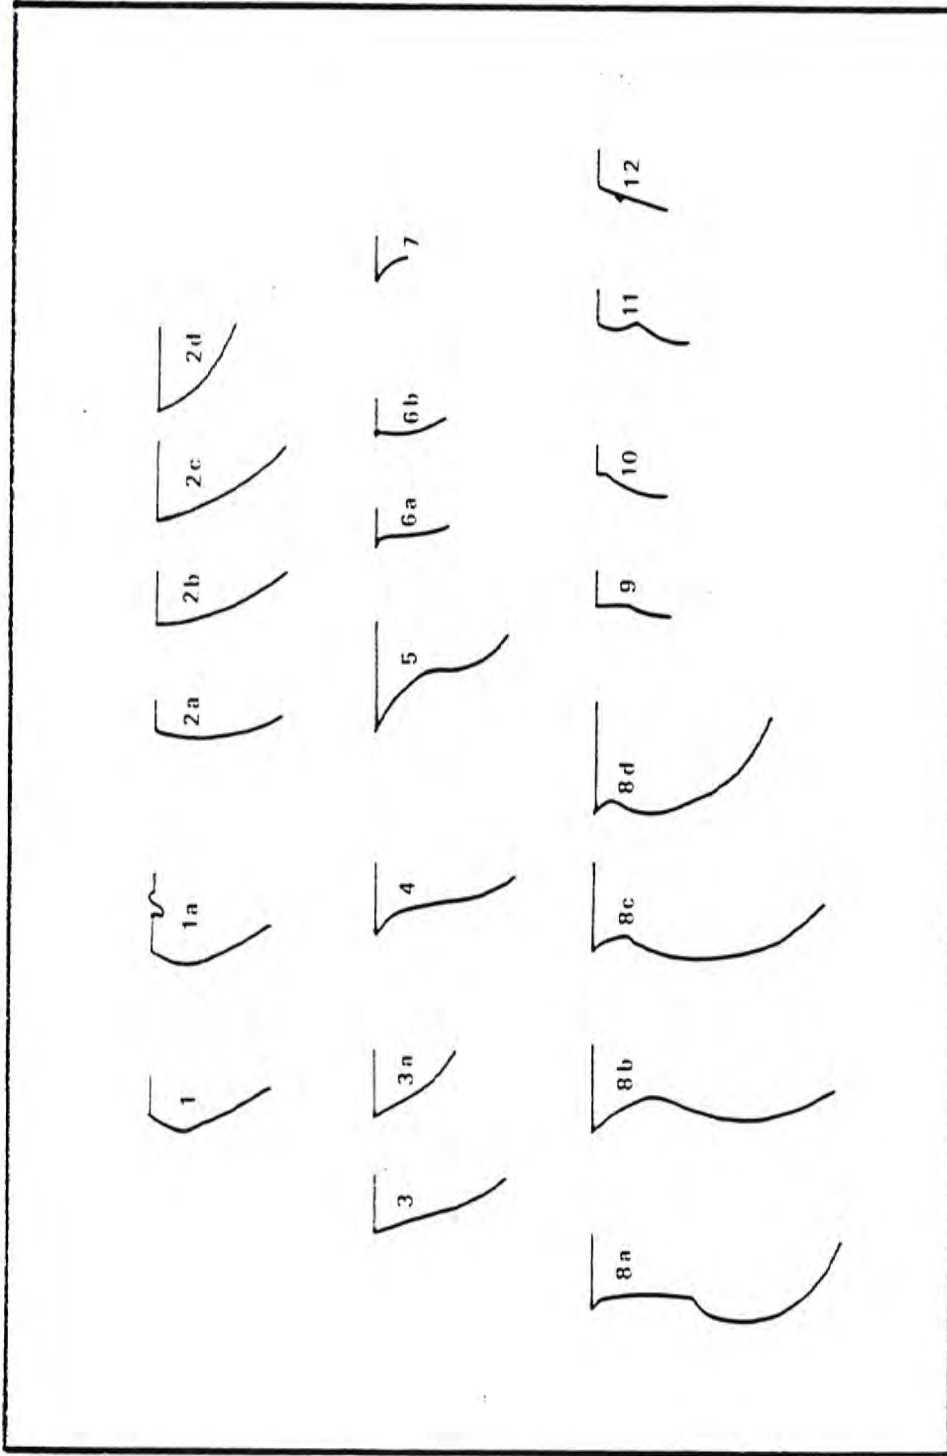 1 1a 2a 2b 2c 2d
3 3a 4 5 6a 6b 7
8a 8b 8c 8d 9 10 11 12